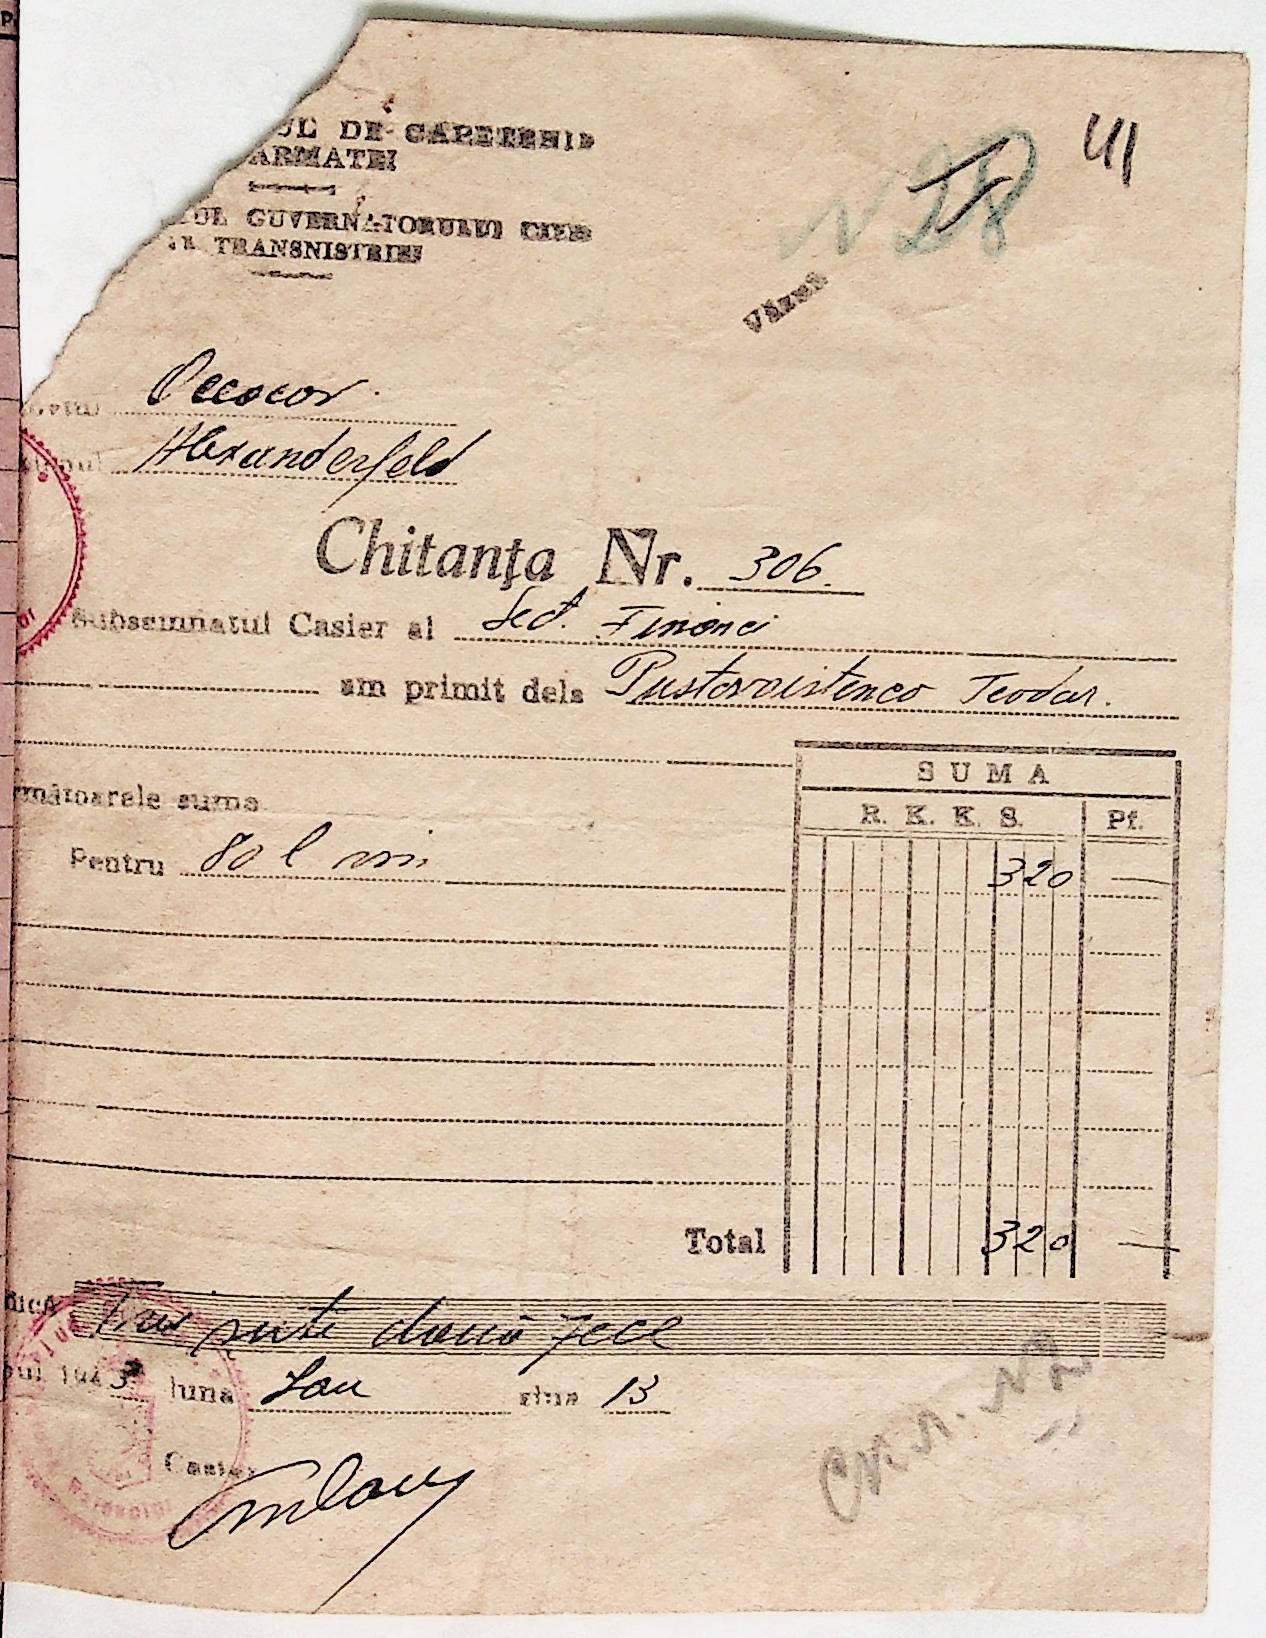 UL DE CAPETENIE
ARMATEI
TUL GUVERNATORULUI CIVIL
AL TRANSNISTRIEI
N 28
41
Văzut
Ococov
Alexanderfeld
Chitanţa Nr. 306.
Subsemnatul Casier al Sect. Financi
am primit dela Pustovoitenco Teodor.
rmătoarele sume
SUMA
R. K. K. S. Pf.
Pentru 80 l vin 320 —
Total 320 —
dică Trei sute două zece
ul 1943 luna Ian ziua 13
Casier